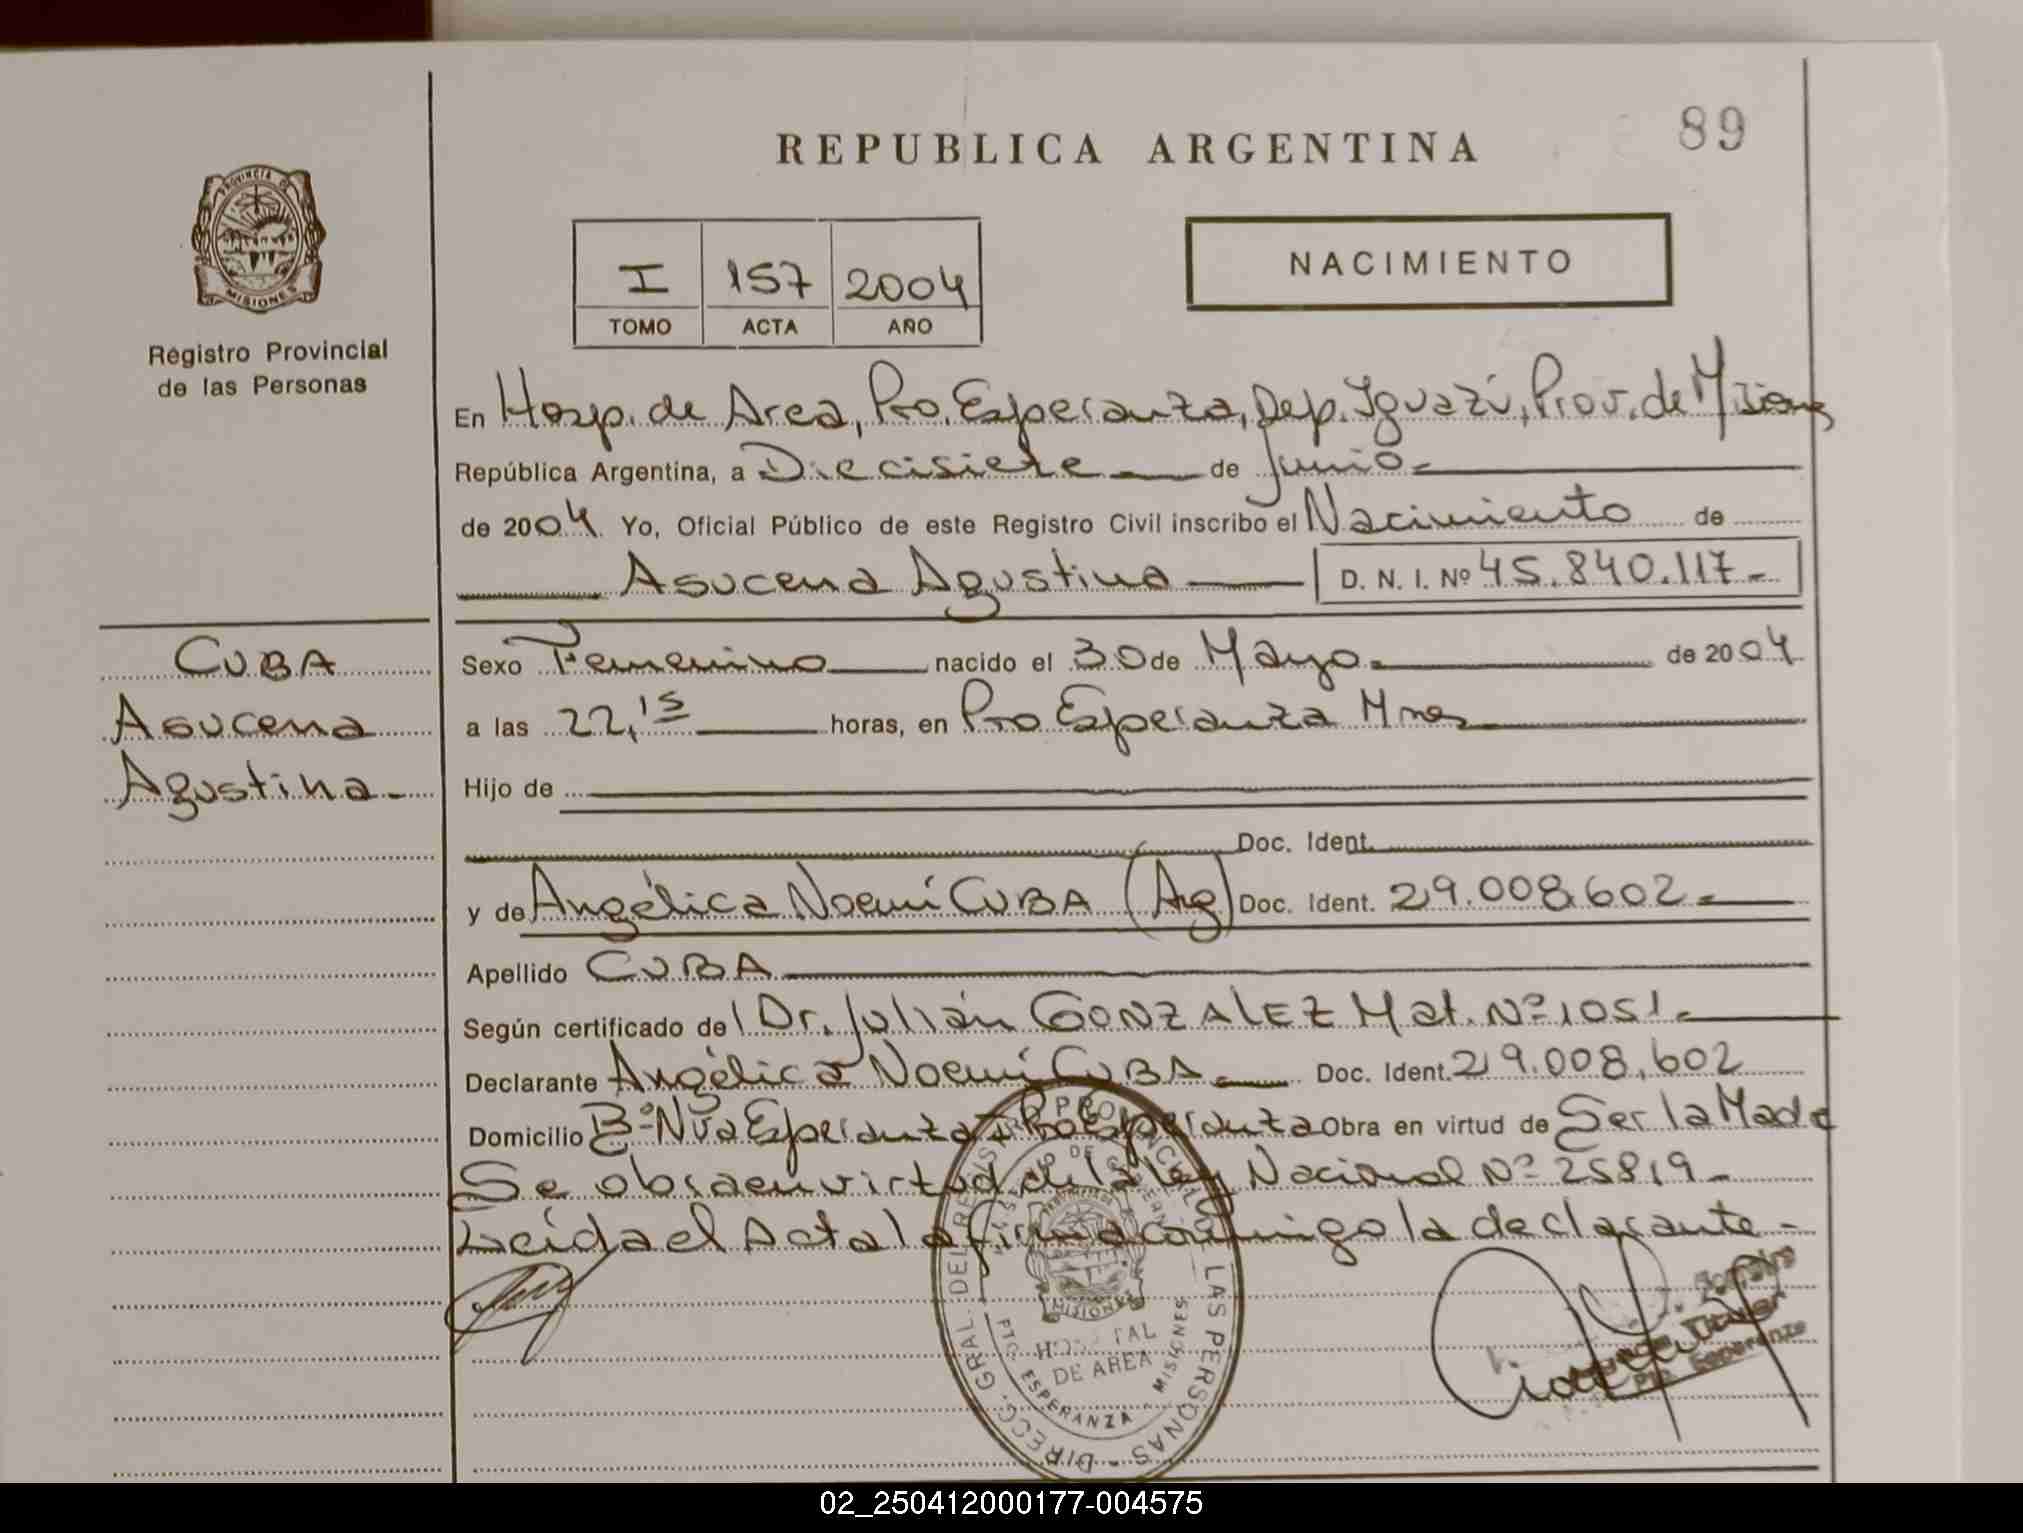 89
REPUBLICA ARGENTINA
PROVINCIA DE
MISIONES
I 157 2004
TOMO ACTA AÑO
NACIMIENTO
Registro Provincial
de las Personas
En Hosp. de Area, Pto. Esperanza, Dep. Iguazú, Prov. de Misiones
República Argentina, a Diecisiete de Junio
de 2004 Yo, Oficial Público de este Registro Civil inscribo el Nacimiento de
Asucena Agustina D. N. I. Nº 45.840.117-
CUBA
Asucena
Agustina-
Sexo Femenino nacido el 30 de Mayo de 2004
a las 22,15 horas, en Pto Esperanza Mnes
Hijo de
Doc. Ident.
y de Angélica Noemí CUBA (Arg) Doc. Ident. 29.008.602-
Apellido CUBA
Según certificado del Dr. Julián GONZALEZ Mat. Nº 1051-
Declarante Angélica Noemí CUBA Doc. Ident. 29.008.602
Domicilio Bº Nva Esperanza Pto Esperanza Obra en virtud de Ser la Madre
Se obra en virtud de la ley Nacional Nº 25819-
Leída el Acta la firma conmigo la declarante-
DIRECC. GRAL. DEL REGISTRO PROVINCIAL DE LAS PERSONAS
MISIONES
HOSPITAL
DE AREA
PTO. ESPERANZA - MISIONES
Titular
Pto. Esperanza
02_250412000177-004575